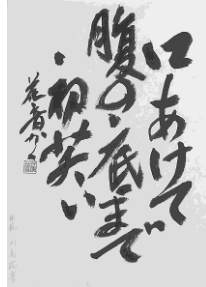 口あけて
腹の底まで
初笑い